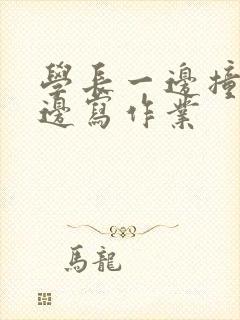 學長一邊撞
邊寫作業
馬龍